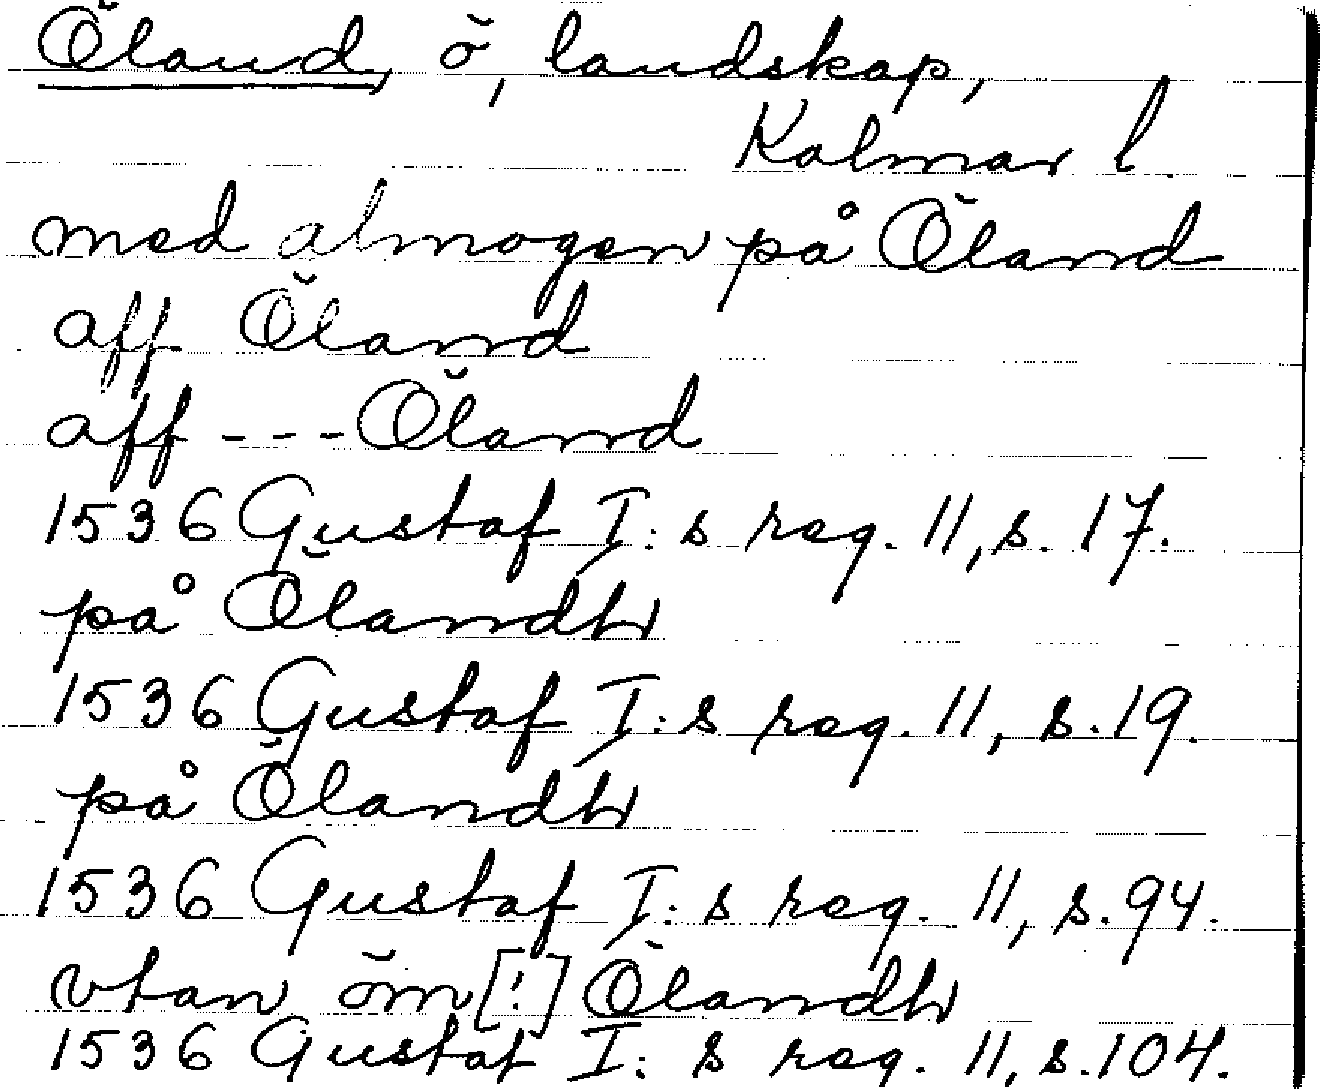 Öland, ö, landskap,
Kalmar l.
med almogen på Öland
aff Öland
aff - - - Öland
1536 Gustaf I:s reg. 11, s. 17.
på Ölandh
1536 Gustaf I:s reg. 11, s. 19.
på Ölandh
1536 Gustaf I:s reg. 11, s. 94.
vtan öm [!] Ölandh
1536 Gustaf I:s reg. 11, s. 104.